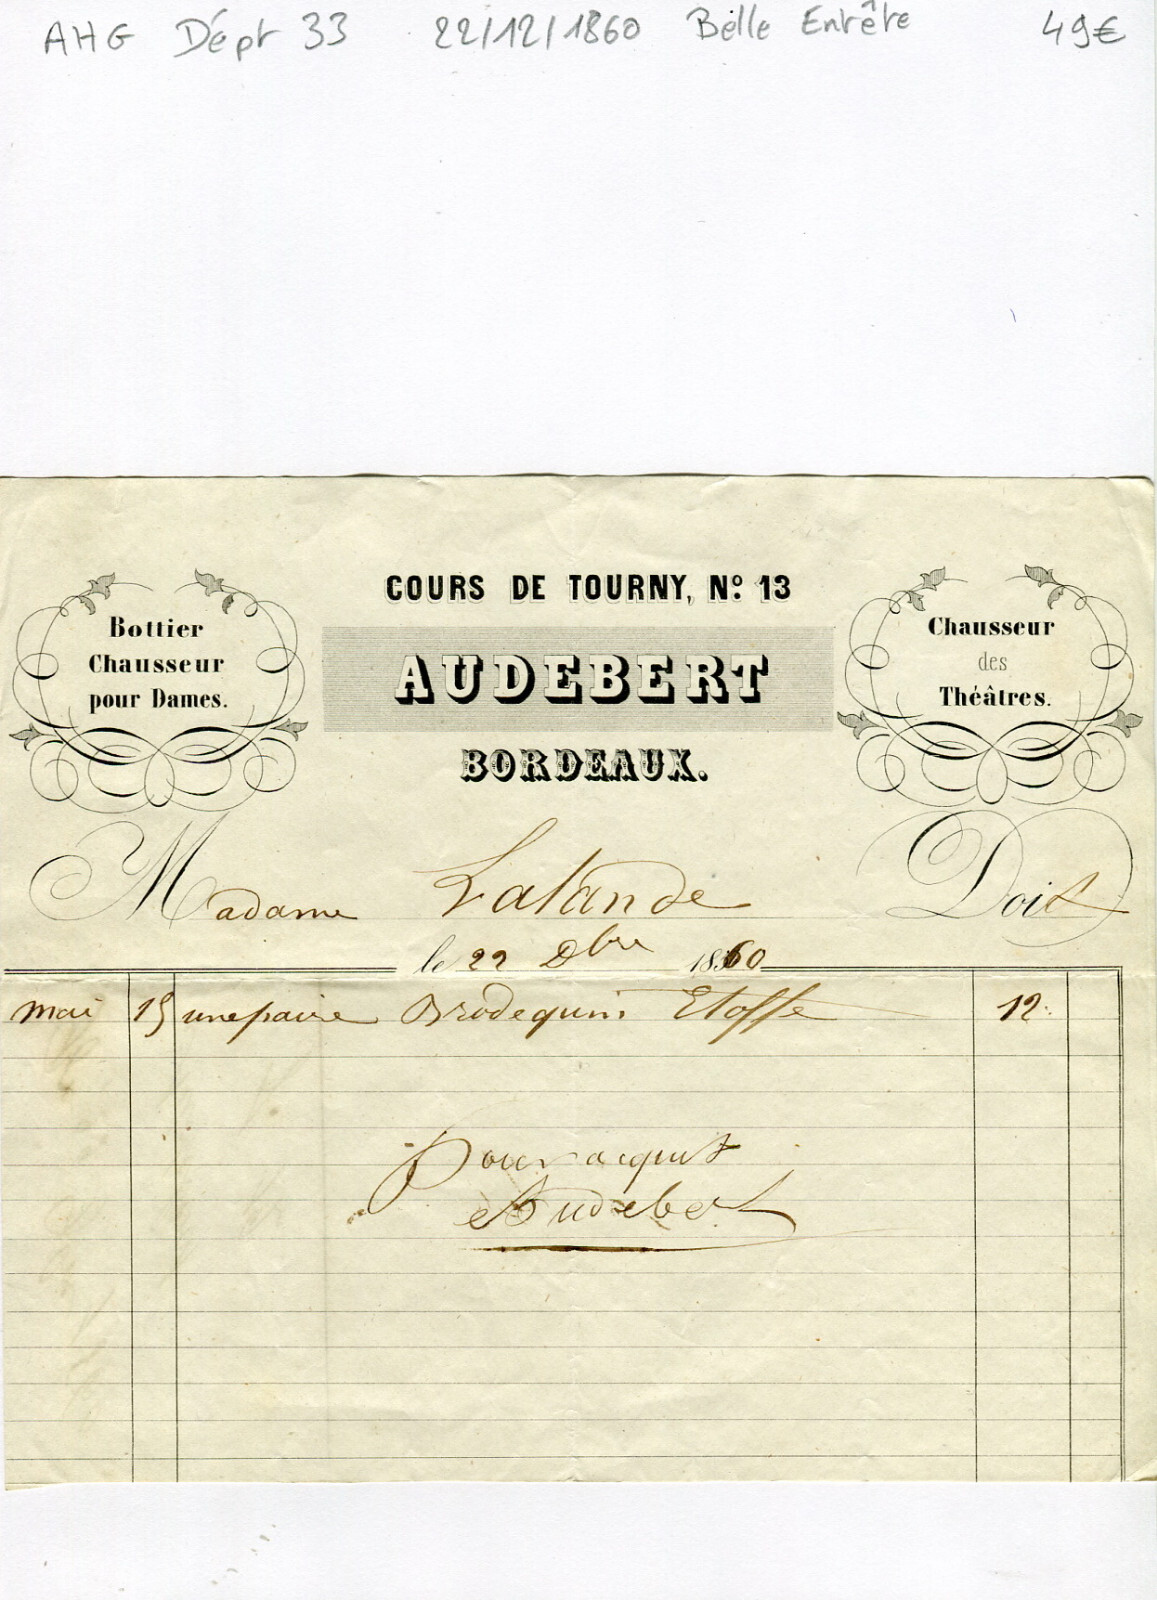 AHG Dépt 33 22/12/1860 Belle Entête 49€
COURS DE TOURNY, Nº 13
Bottier
Chausseur
pour Dames.
AUDEBERT
BORDEAUX.
Chausseur
des
Théâtres.
Madame Lalande Doit
le 22 Dbre 1860
mai 15 une paire Brodequins Etoffe 12
Pour acquit
Audebert